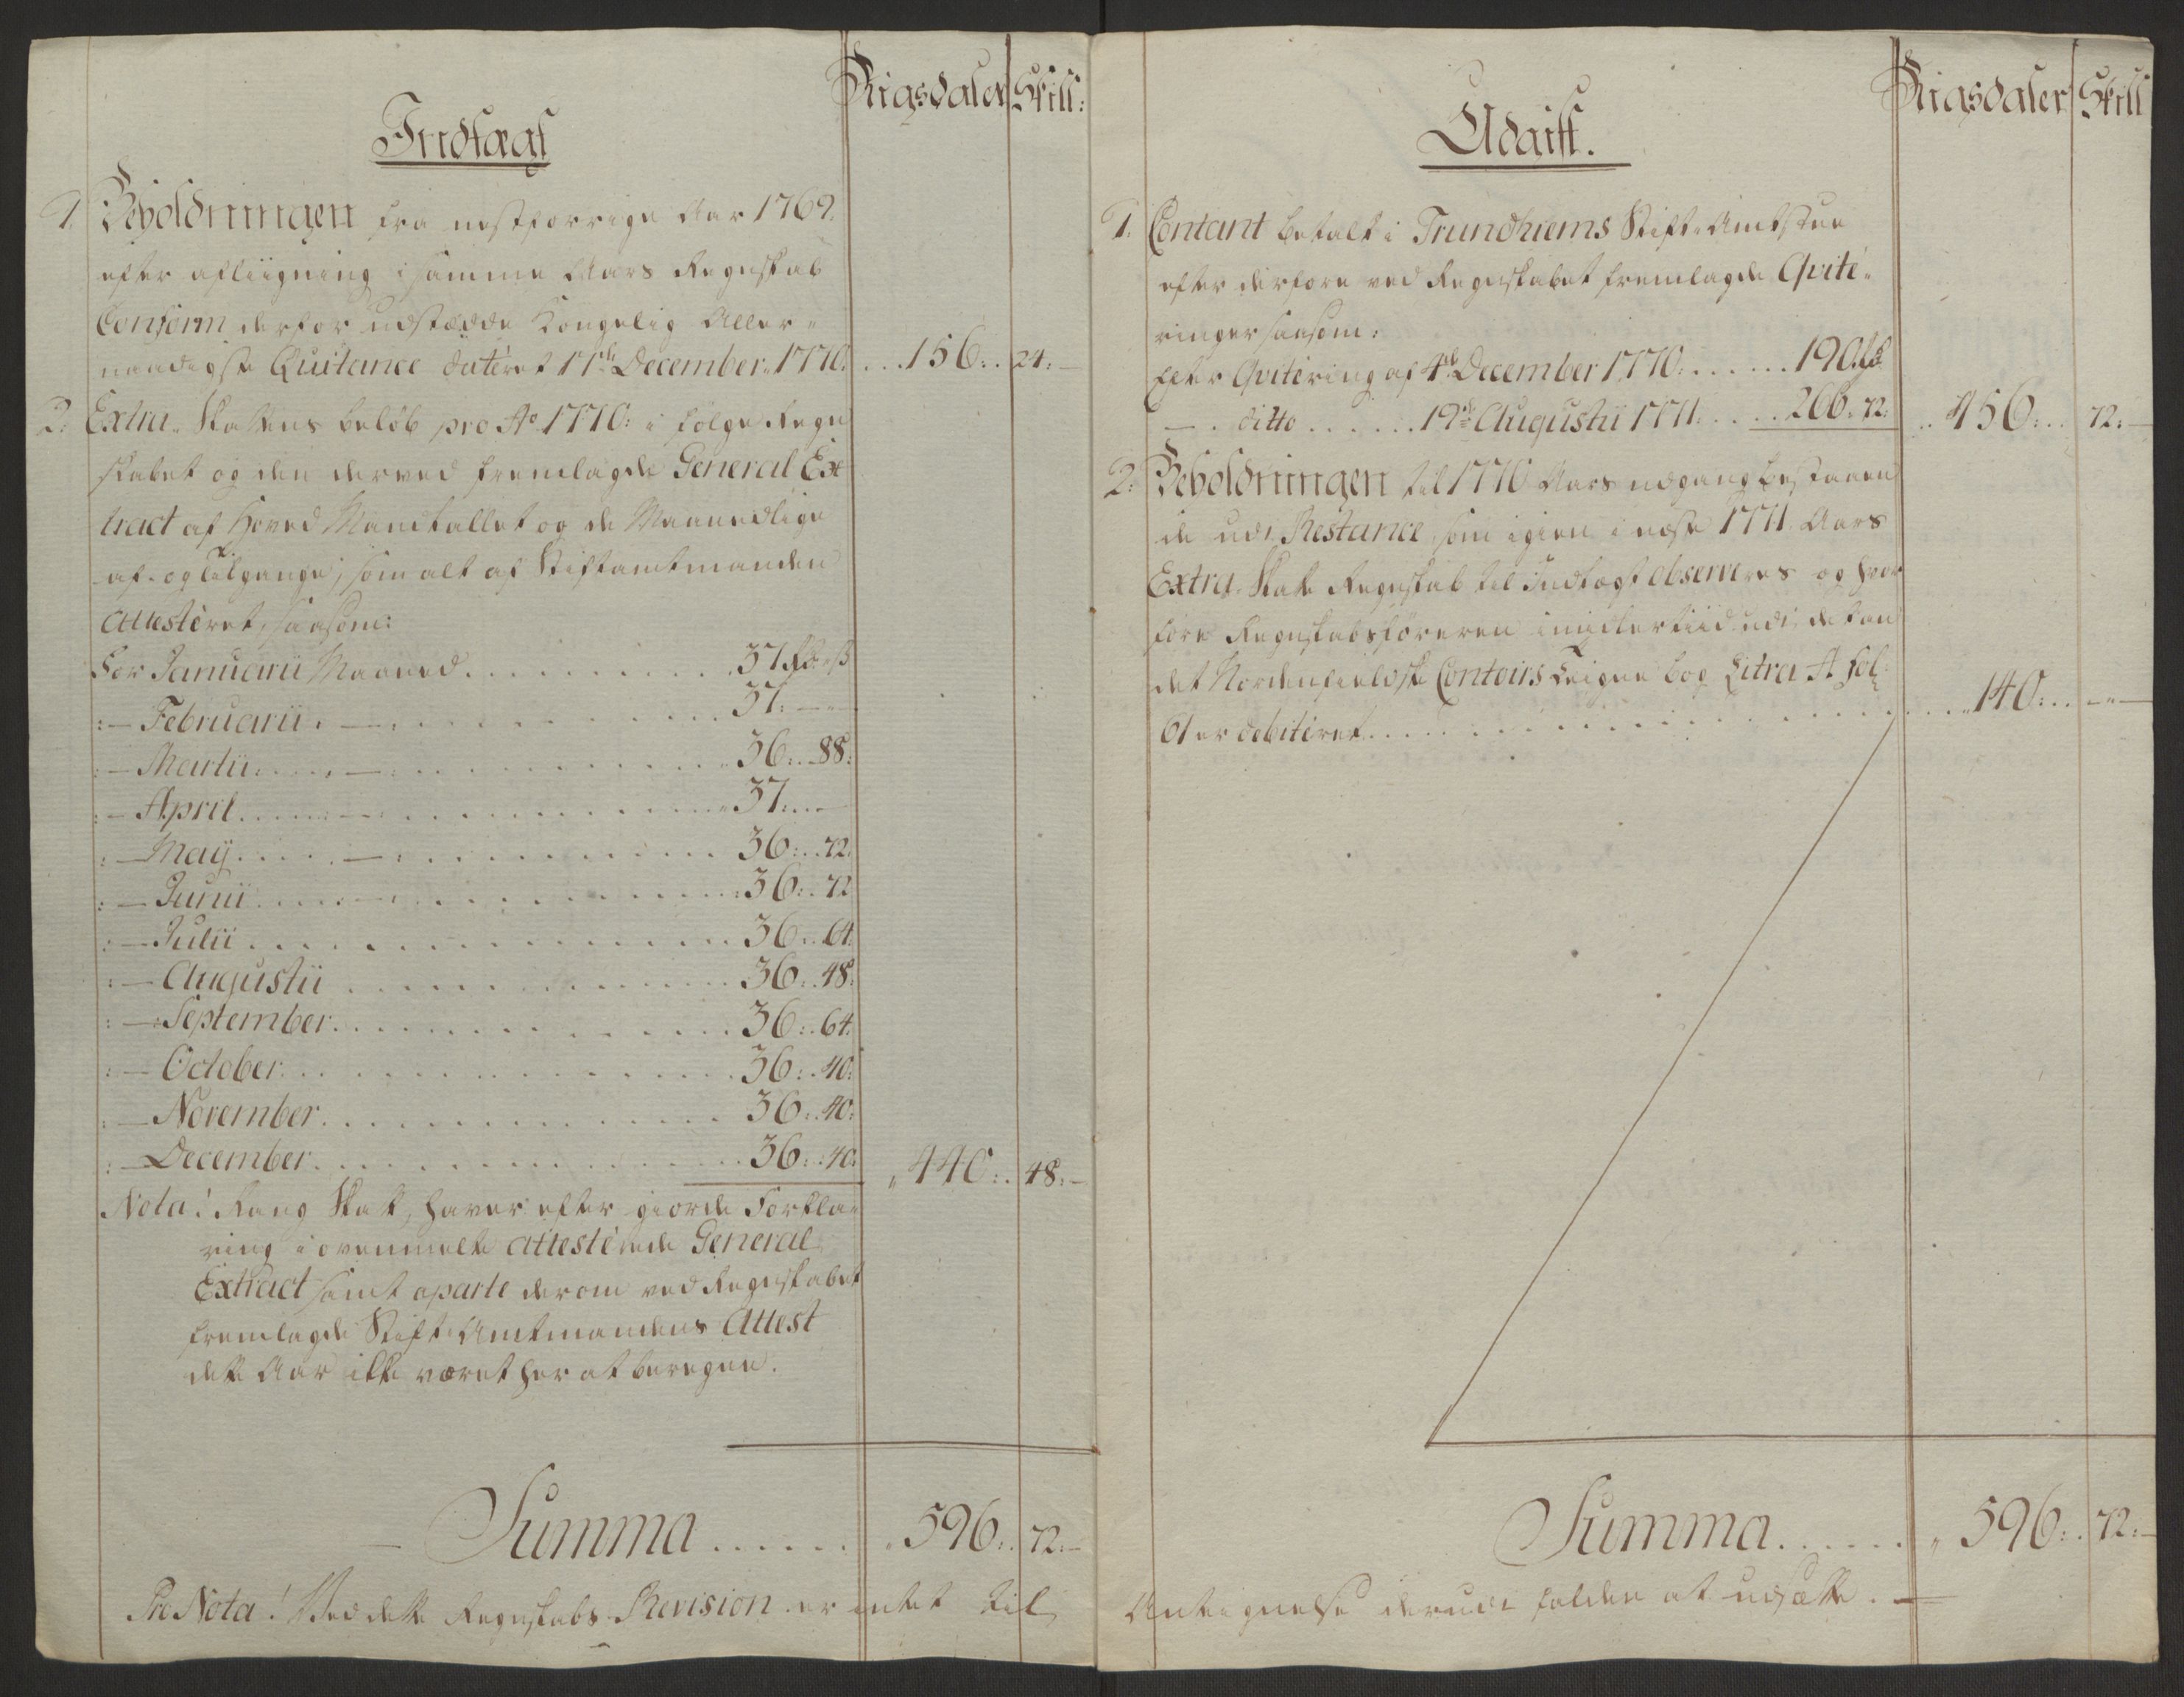 Rigsdaler Skill:
Indtægt
1. Beholdningen fra nestforrige Aar 1769.
efter afliigning i samme Aars Regnskab
Conform derfor udstædde Kongelig Aller-
naadigste Quitance datèret 17de December 1770. . . 156: . 24: -
2. Extra- Skattens beløb pro Ao 1770: i følge Regn
skabet og den derved fremlagde General Ex
tract af Hoved Mandtallet og de Maanedlige
af- og tilgange, som alt af Stiftamtmanden
attestèret, saasom:
For Januarii Maaned . . . . . . . . . 37 Rd "ß
:- Februarii. - . . . . . . . . . 37: - "-
:- Martii: . . . - . . . . . . . . . 36: . 88:
:- April . . . . - . . . . . . . . . 37: . . -
:- Maij . . . . - . . . . . . . . . 36: . 72:
:- Junii . . . . - . . . . . . . . . 36: . 72
:- Julii . . . . . . . . . . . . . 36: . 64:
:- Augustii . . . . . . . . . . . . 36: . 48:
:- September . . . . . . . . . . . . 36: . 64:
:- October . . . . . . . . . . . . . 36: . 40:
:- November . . . . . . . . . . . . . 36: . 40:
:- December . . . . . . . . . . . . . 36: . 40: " 440: . 48: -
Nota! Rang Skat, haver efter giorde Forkla-
ring i ovenmelte attestèrede General
Extract samt aparte derom ved Regnskabet
fremlagde Stift Amtmandens Attest
dette Aar ikke været her at beregne.
Summa . . . . . . " 596: . 72: -
Pro Nota! Ved dette Regnskabs Revision er intet til
Rigsdaler Skill
Udgift.
1. Contant betalt i Trundhiems Stift Amtstue
efter derfore ved Regnskabet fremlagde Qvitè-
ringer saasom:
Efter Qvitèring af 4de December 1770: . . . . . . 190 Rd
- . ditto . . . . . . 19de Augustii 1771: . . . . 266: 72: . . 456: . . 72: -
2: Beholdningen til 1770 Aars udgang bestaaen
de udi Restance, som igien i næste 1771 Aars
Extra- Skatte Regnskab til Indtægt observeres og hvor
fore Regnskabsføreren imidlertiid udi det an
det Nordenfieldske Contoirs Teigne bog Litra A fol:
61 er debitèret . . . . . . . . . . . . . . . 140: . . - " -
Summa . . . . . . " 596: . 72: -
Anteignelse derudi falden at udsætte. -